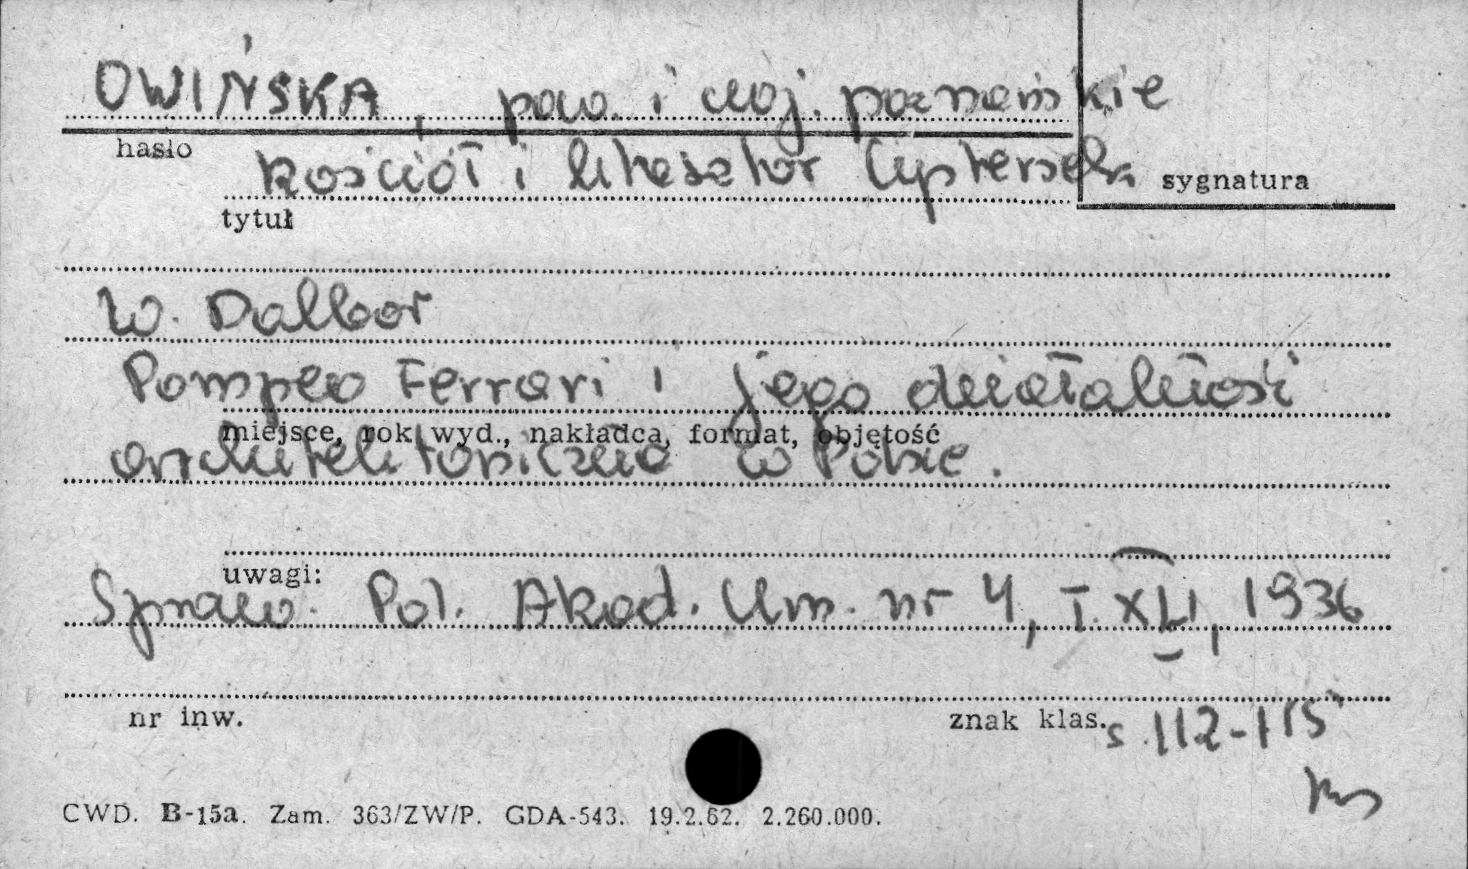 OWIŃSKA, pow. i woj. poznańskie
hasło
Kościół i klasztor Cysterek
sygnatura
tytuł
W. Dalbor
Pompeo Ferrari i jego działalność
miejsce, rok wyd., nakładca, format, objętość
architektoniczna w Polsce.
uwagi:
Spraw. Pol. Akad. Um. nr 4, T. XLI, 1936
nr inw.
znak klas.
s. 112-115
CWD. B-15a. Zam. 363/ZW/P. GDA-543. 19.2.62. 2.260.000.